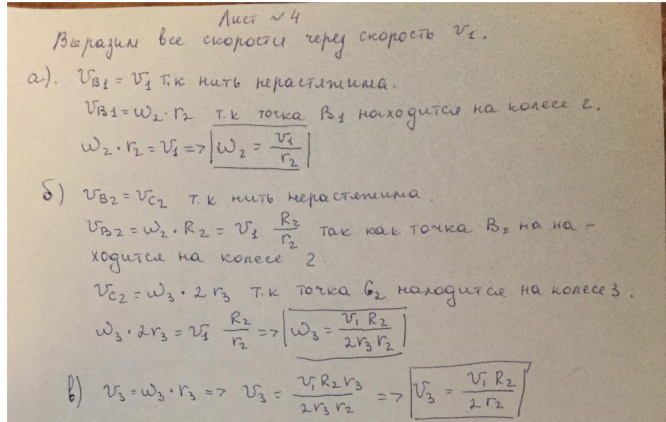 Лист №4
Выразим все скорости через скорость v₁.
а). v_B1 = v₁ т.к нить нерастяжима.
v_B1 = ω₂ · r₂ т.к точка B₁ находится на колесе 2.
ω₂ · r₂ = v₁ => ω₂ = v₁/r₂
б) v_B2 = v_C2 т.к нить нерастяжима.
v_B2 = ω₂ · R₂ = v₁ R₂/r₂ так как точка B₂ на на-
ходится на колесе 2.
v_C2 = ω₃ · 2r₃ т.к точка C₂ находится на колесе 3.
ω₃ · 2r₃ = v₁ R₂/r₂ => ω₃ = v₁ R₂/2r₃ r₂
в) v₃ = ω₃ · r₃ => v₃ = v₁ R₂ r₃/2r₃ r₂ => v₃ = v₁ R₂/2r₂